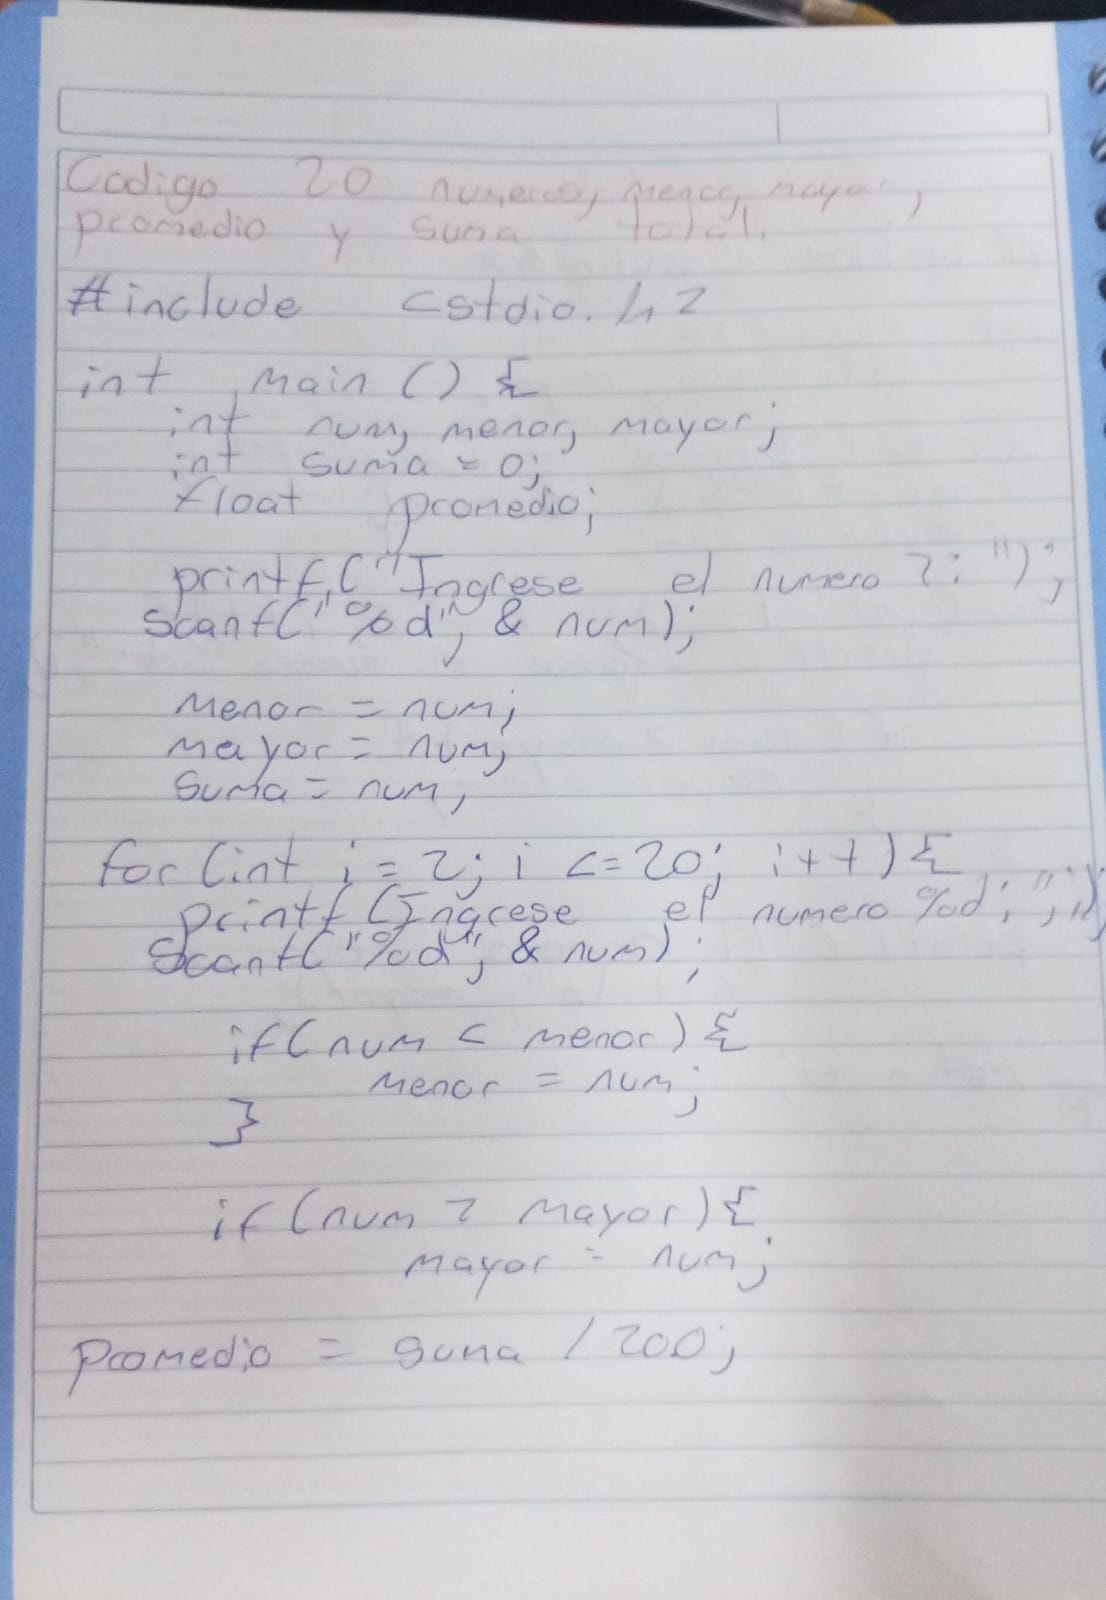 Codigo 20 numeros, menor, mayor,
promedio y suma total.
#include <stdio.h>
int main () {
int num, menor, mayor;
int suma = 0;
float promedio;
printf ("Ingrese el numero 1: ");
scanf("%d", & num);
menor = num;
mayor = num;
suma = num;
for (int i = 2; i <= 20; i++) {
printf (Ingrese el numero %d: ", i);
scanf("%d", & num);
if(num < menor) {
menor = num;
}
if (num > mayor) {
mayor = num;
promedio = suma / 200;